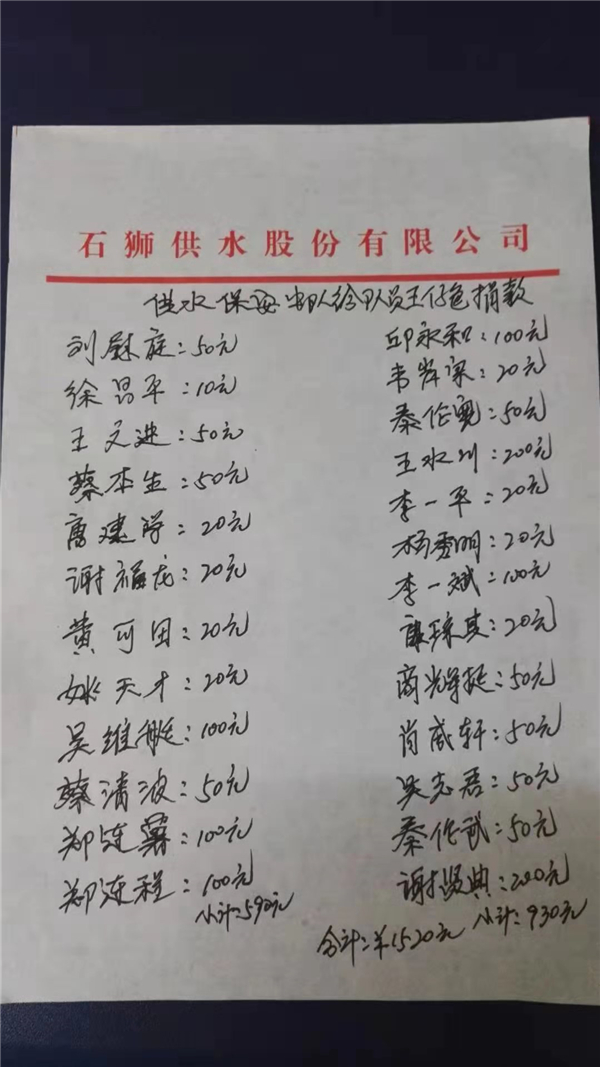 石狮供水股份有限公司
供水保安中队给队员王仔色捐款
刘慰庭:50元
徐昌平:10元
王文进:50元
蔡本生:50元
唐建学:20元
谢福龙:20元
黄可团:20元
姚天才:20元
吴维艇:100元
蔡清波:50元
郑连:100元
郑连程:100元
小计:590元
邱永和:100元
韦家:20元
秦伦宽:50元
王水川:200元
李一平:20元
杨秀明:20元
李一斌:100元
琼其:20元
商光挺:50元
肖成轩:50元
吴志君:50元
秦作武:50元
谢贤典:200元
小计:930元
合计:¥1520元